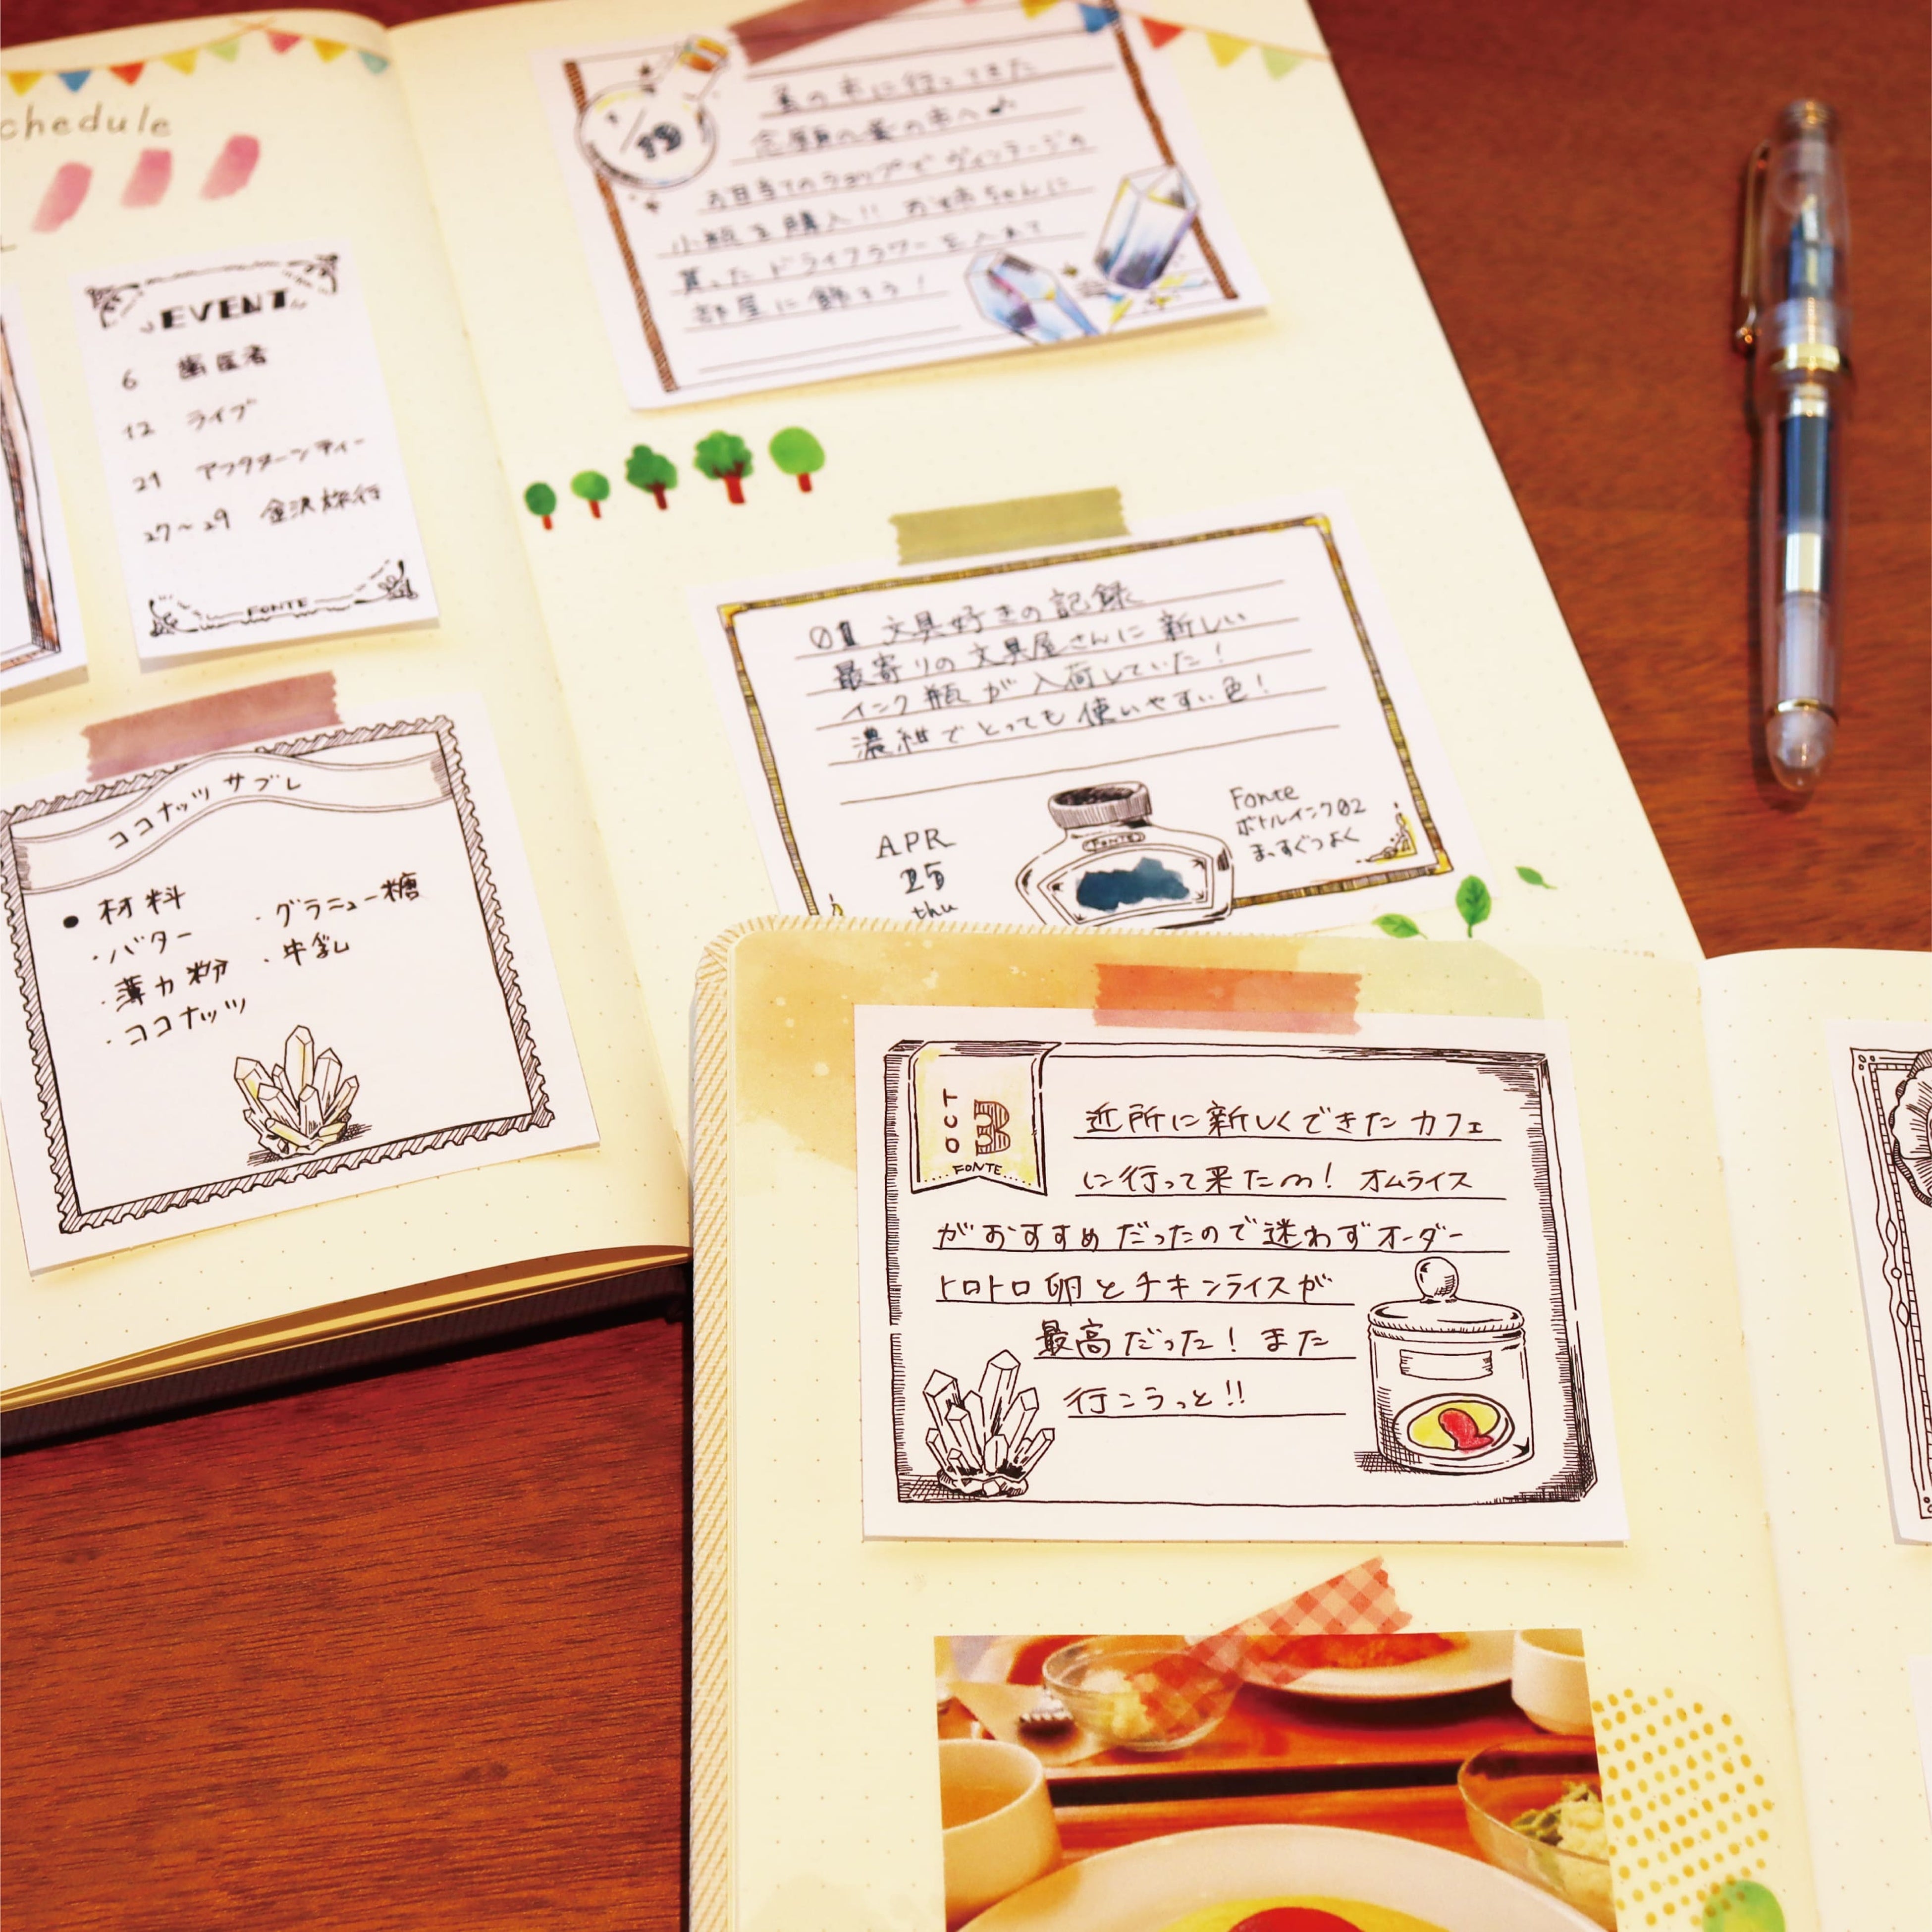 chedule
EVENT
6 歯医者
12 ライブ
21 アフタヌーンティー
27~29 金沢旅行
FONTE
ココナッツサブレ
● 材料
・バター
・薄力粉
・ココナッツ
・グラニュー糖
・牛乳
/19
蚤の市に行ってきた
念願の蚤の市へ♪
お目当てのショップでヴィンテージの
小瓶を購入!! お姉ちゃんに
貰ったドライフラワーを入れて
部屋に飾ろう!
01 文具好きの記録
最寄りの文具屋さんに新しい
インク瓶が入荷していた!
濃紺でとっても使いやすい色!
APR
25
thu
FONTE
Fonte
ボトルインク02
まっすぐつよく
OCT
3
FONTE
近所に新しくできたカフェ
に行って来たの! オムライス
がおすすめだったので迷わずオーダー
トロトロ卵とチキンライスが
最高だった! また
行こうっと!!